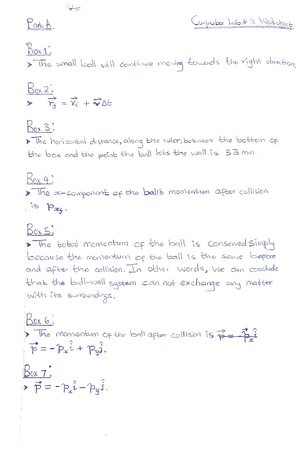 Part A.
Computer Lab # 3 Worksheet
Box 1:
> The small ball will continue moving towards the right direction.
Box 2:
> r⃗f = r⃗i + v⃗Δt
Box 3:
> The horizontal distance, along the ruler, between the bottom of
the box and the point the ball hits the wall is 33 mm.
Box 4:
> The x-component of the ball's momentum after collision
is pxf.
Box 5:
> The total momentum of the ball is conserved simply
because the momentum of the ball is the same before
and after the collision. In other words, we can conclude
that the ball-wall system can not exchange any matter
with its surroundings.
Box 6:
> The momentum of the ball after collision is
p⃗ = -pxî + pyĵ.
Box 7:
> p⃗ = -pxî - pyĵ.